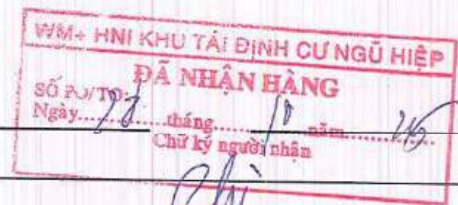 WM+ HNI KHU TÁI ĐỊNH CƯ NGŨ HIỆP
ĐÃ NHẬN HÀNG
SỐ PO/TO:
Ngày.........tháng.........năm.........
Chữ ký người nhận